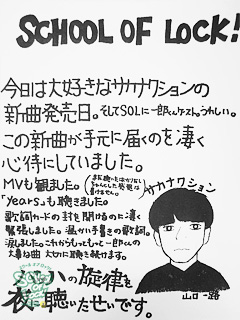 SCHOOL OF LOCK!
今日は大好きなサカナクションの
新曲発売日。そしてSOLに一郎くんゲスト。うれしい。
この新曲が手元に届くのを凄く
心待にしていました。
MVも観ました。
「years」も聴きました。
サカナクション
歌詞カードの封を開けるのに凄く
緊張しました。温かい手書の歌詞。
涙しました。これからもっともっと一郎くんの
大事に聴き続けます。
の旋律を
夜に聴いたせいです。
山口一郎